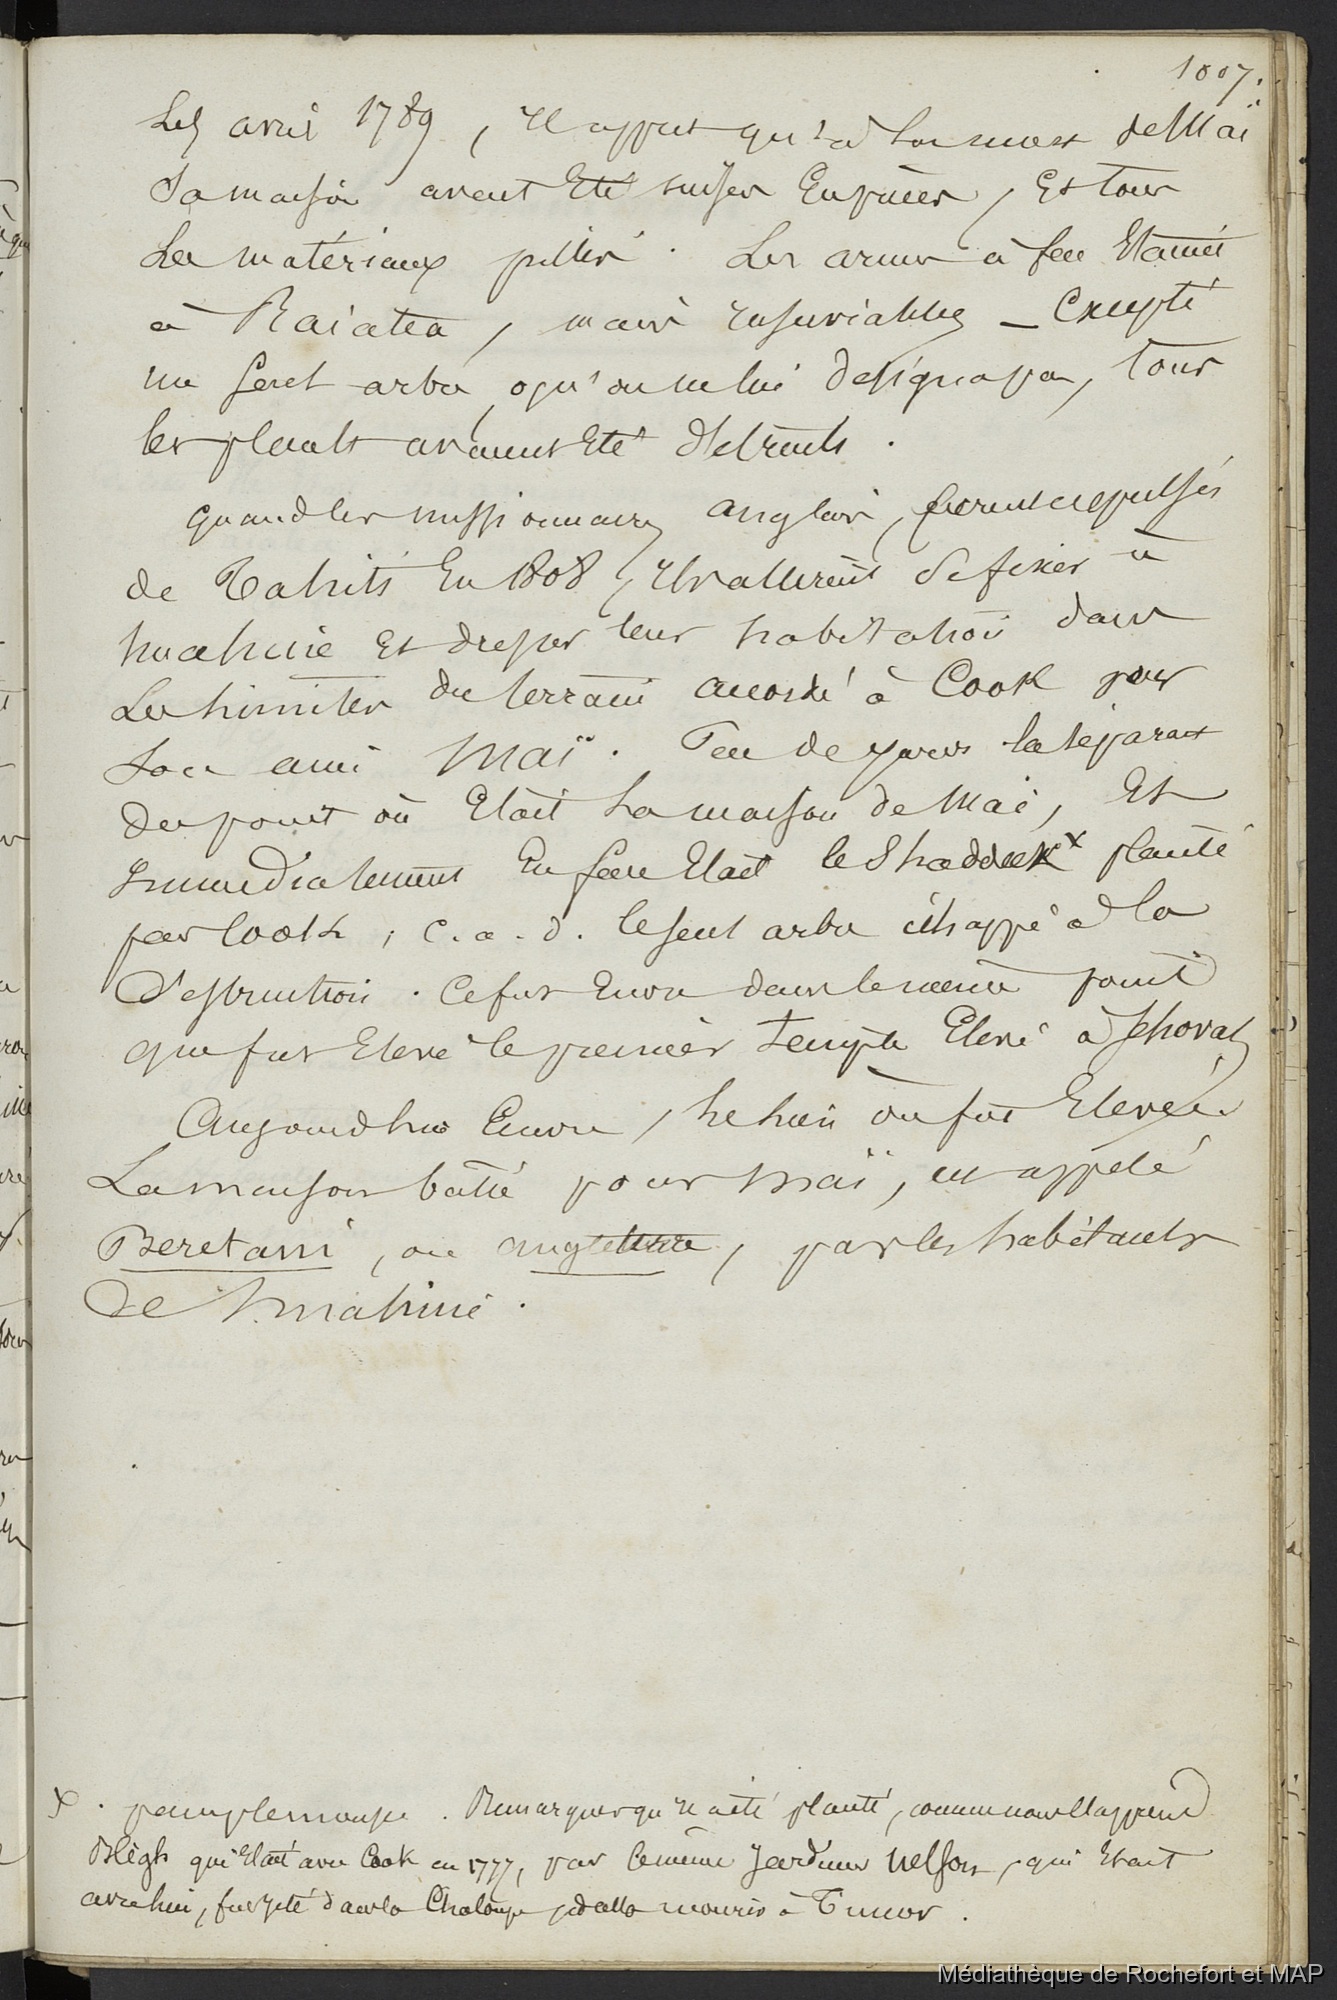 1007.
Le 5 avril 1789, il apprit qu'à la mort de Maï
sa maison avait été mise en pièces, et tous
les matériaux pillés. Les armes à feu étaient
à Raiatea, mais inserviables _ Excepté
un seul arbre, qu'on ne lui désigna pas, tous
les plants avaient été détruits.
quand les missionnaires anglais, furent expulsés
de Tahiti en 1808, ils allèrent se fixer à
huahine et dresser leur habitation dans
les limites du terrain accordé à Cook pour
son ami Maï. Peu de pas la séparait
du point où était la maison de Maï, Et
immédiatement en face était le Shaddock x planté
par Cook, c.a.d. le seul arbre échappé à la
destruction. Ce fut encore dans le même point
que fut élevé le premier temple élevé à Jehovah
Aujourdhui Encore, le lieu où fut élevée
La maison bâtie pour Maï, est appelé
Beretani, ou angleterre, par les habitants
de huahine.
x. pamplemousse. Remarquer qu'il a été planté, comme nous l'apprend
Bligh qui était avec Cook en 1777, par le même Jardinier Nelson, qui était
avec lui, fut jeté dans la Chaloupe et alla mourir à Timor.
Médiathèque de Rochefort et MAP